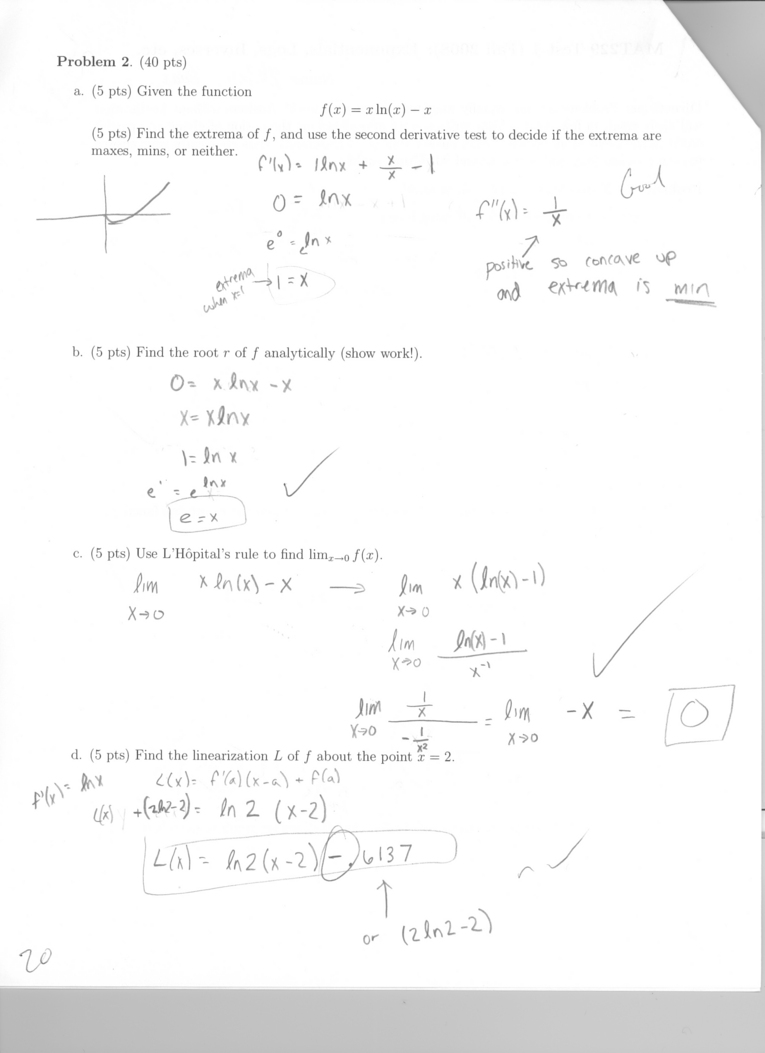 Problem 2. (40 pts)
a. (5 pts) Given the function
f(x) = x ln(x) − x
(5 pts) Find the extrema of f, and use the second derivative test to decide if the extrema are
maxes, mins, or neither.
f'(x) = 1lnx + x/x - 1
0 = lnx
e^0 = e^ln x
extrema when x=1 → 1 = x
Good
f''(x) = 1/x
↗
positive so concave up
and extrema is min
b. (5 pts) Find the root r of f analytically (show work!).
0 = x lnx - x
x = xlnx
1 = ln x
e^1 = e^lnx
e = x
✓
c. (5 pts) Use L'Hôpital's rule to find lim_{x→0} f(x).
lim x→0 x ln(x) - x → lim x→0 x (ln(x) - 1)
lim x→0 (ln(x) - 1)/x^-1
lim x→0 (1/x)/(-1/x^2) = lim x→0 -x = 0
✓
d. (5 pts) Find the linearization L of f about the point x = 2.
f'(x) = lnx
L(x) = f'(a)(x-a) + f(a)
L(x) +(2ln2-2) = ln 2 (x-2)
L(x) = ln2(x-2) - .6137
✓
↑
or (2ln2-2)
20